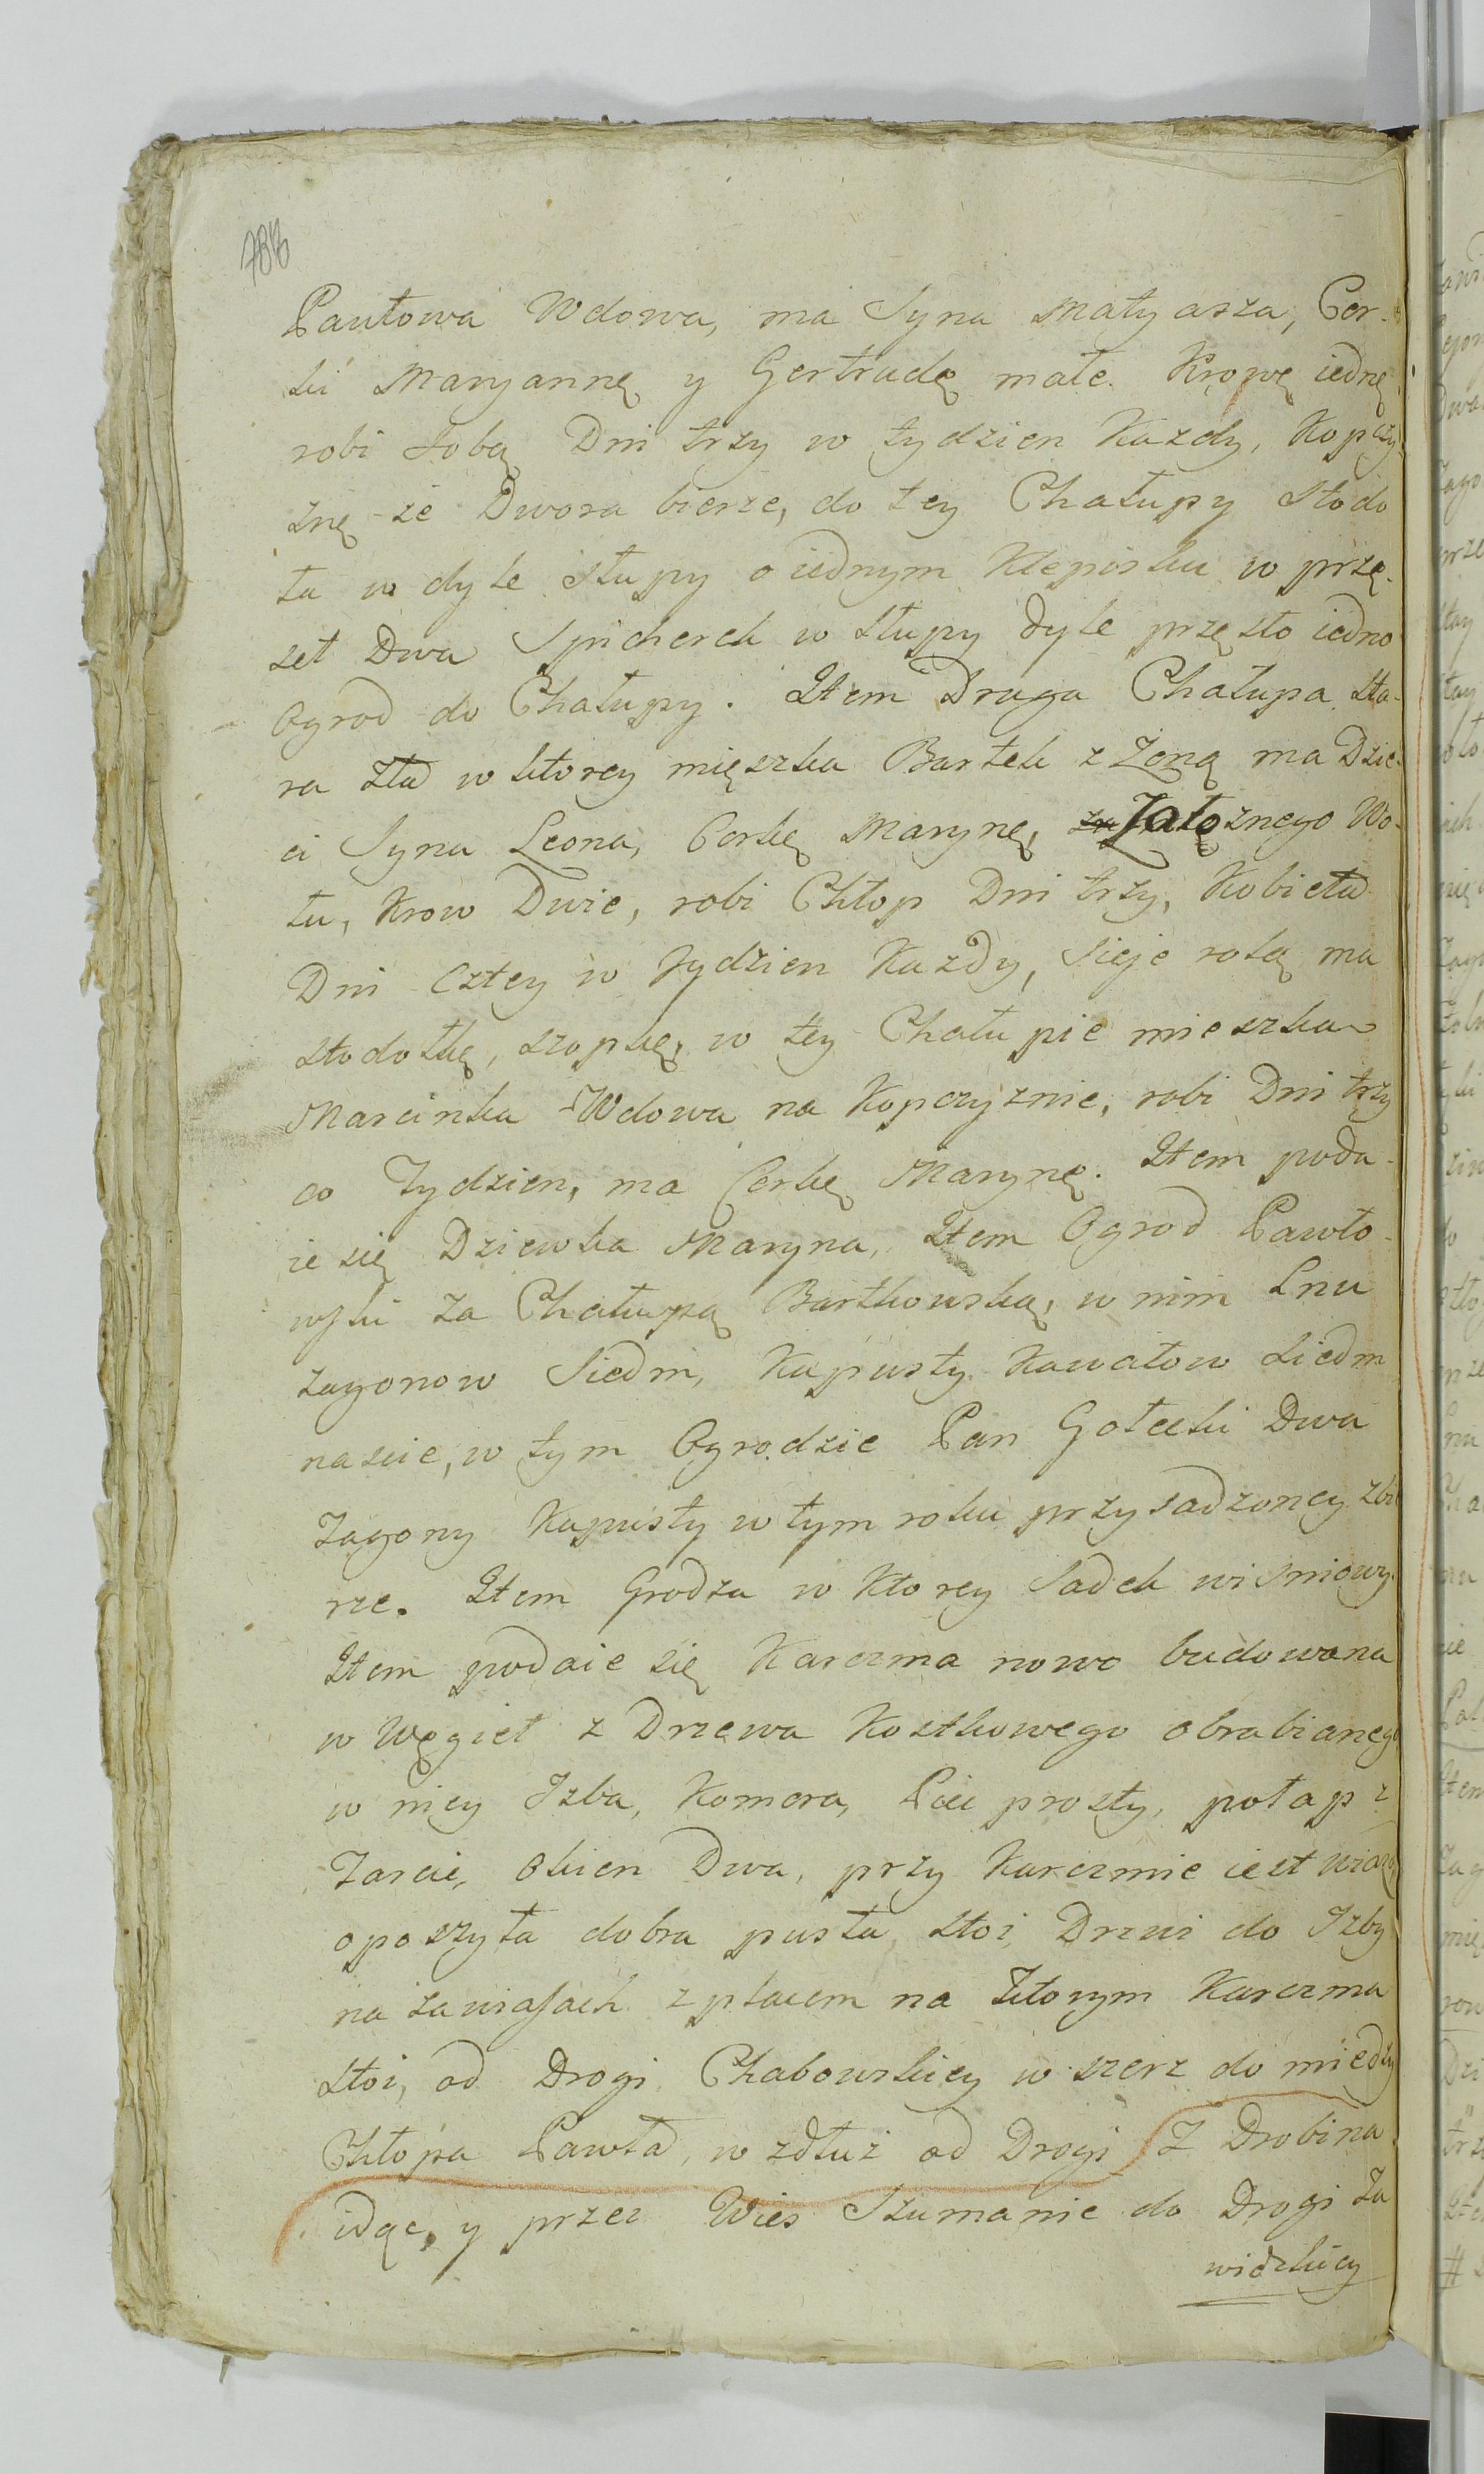 Pawłowa Wdowa, ma Syna Matyasza, Cor-
ki Maryannę y Gertrudę małe. Krowę iednę
robi sobą Dni trzy w tydzien Kazdy, Kopczy
znę ze Dwora bierze, do tey Chałupy stodo
ła w dyle słupy o iednym Klepisku w przę-
seł Dwa Spicherek w słupy dyle przęsło iedno
Ogrod do Chałupy. Item Druga Chałupa sta-
ra zła w ktorey mięszka Bartek z Zoną ma Dzie-
ci Syna Leona, Corkę Marynę, Załoznego Wo-
łu, Krow Dwie, robi Chłop Dni trzy, Kobieta
Dni Cztey w tydzien Kazdy, sieje rolą ma
stodołkę, szopkę, w tey Chałupie mieszka
Marcinka Wdowa na Kopczyznie, robi Dni trzy
co Tydzien, ma Corkę Marynę. Item poda-
ie się Dziewka Maryna, Item Ogrod Pawło-
wski za Chałupą Bartkowską, w nim Lnu
zagonow Siedm, Kapusty Kawałow siedm
nascie, w tym Ogrodzie Pan Gołecki Dwa
Zagony Kapusty w tym roku przysadzoney zbie
rze. Item Grodza w Ktorey Sadek wisniowy
Item podaie się Karczma nowo budowana
w Węgieł z Drzewa Kostkowego obrabianego
w niey Izba, Komora, Piec prosty, połap z
Tarcic, Okien Dwa, przy Karczmie iest
oposzyta dobra pusta stoi, Drzwi do Izby
na zawiasach z placem na Ktorym Karczma
stoi, od Drogi Chabowskiey w szerz do miedzy
Chłopa Pawła, w zdłuż od Drogi Z Drobina
idąc, y przez Wies Szumanie do Drogi Za
widzkiey